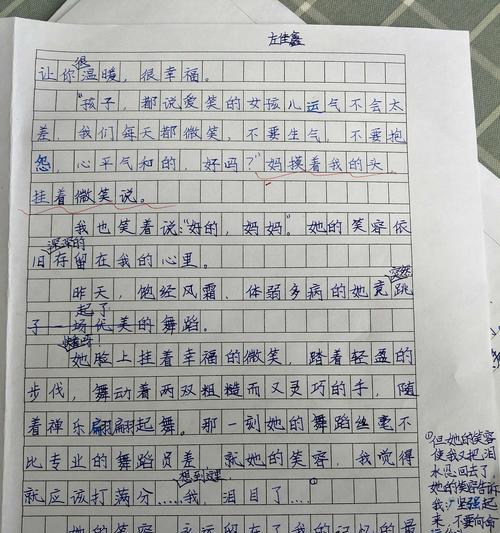 左佳鑫
很
让你温暖，很幸福。
“孩子，都说爱笑的女孩儿运气不会太
差，我们每天都微笑，不要生气，不要抱
怨，心平气和的，好吗？”妈摸着我的头
挂着微笑说。
我也笑着说：“好的，妈妈。”她的笑容依
温柔的
旧存留在我的心里。
突然
昨天，饱经风霜、体弱多病的她竟跳
起了
一场优美的舞蹈。
她脸上挂着幸福的微笑，踏着轻盈的
步伐，舞动着两双粗糙而又灵巧的手，随
着禅乐翩翩起舞。那一刻她的舞蹈丝毫不
比专业的舞蹈员差，就她的笑容，我觉得
想到这里
就应该打满分……我 泪目了……
她的笑容 永远留在了我的记忆的最
①但她的笑容
使我又把泪
水忍回去了，
她的笑容告诉
我：“坚强起
来，不要向命